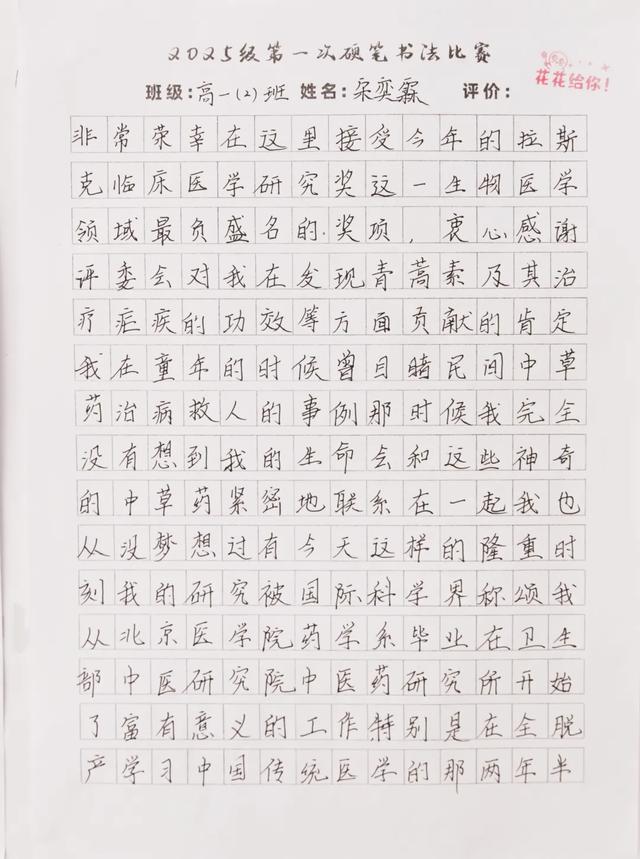 2025级第一次硬笔书法比赛
花花给你!
班级:高一(2)班 姓名:宋奕霖 评价:
非常荣幸在这里接受今年的拉斯
克临床医学研究奖这一生物医学
领域最负盛名的.奖项,衷心感谢
评委会对我在发现青蒿素及其治
疗疟疾的功效等方面贡献的肯定
我在童年的时候曾目睹民间中草
药治病救人的事例那时候我完全
没有想到我的生命会和这些神奇
的中草药紧密地联系在一起我也
从没梦想过有今天这样的隆重时
刻我的研究被国际科学界称颂我
从北京医学院药学系毕业在卫生
部中医研究院中医药研究所开始
了富有意义的工作特别是在全脱
产学习中国传统医学的那两年半